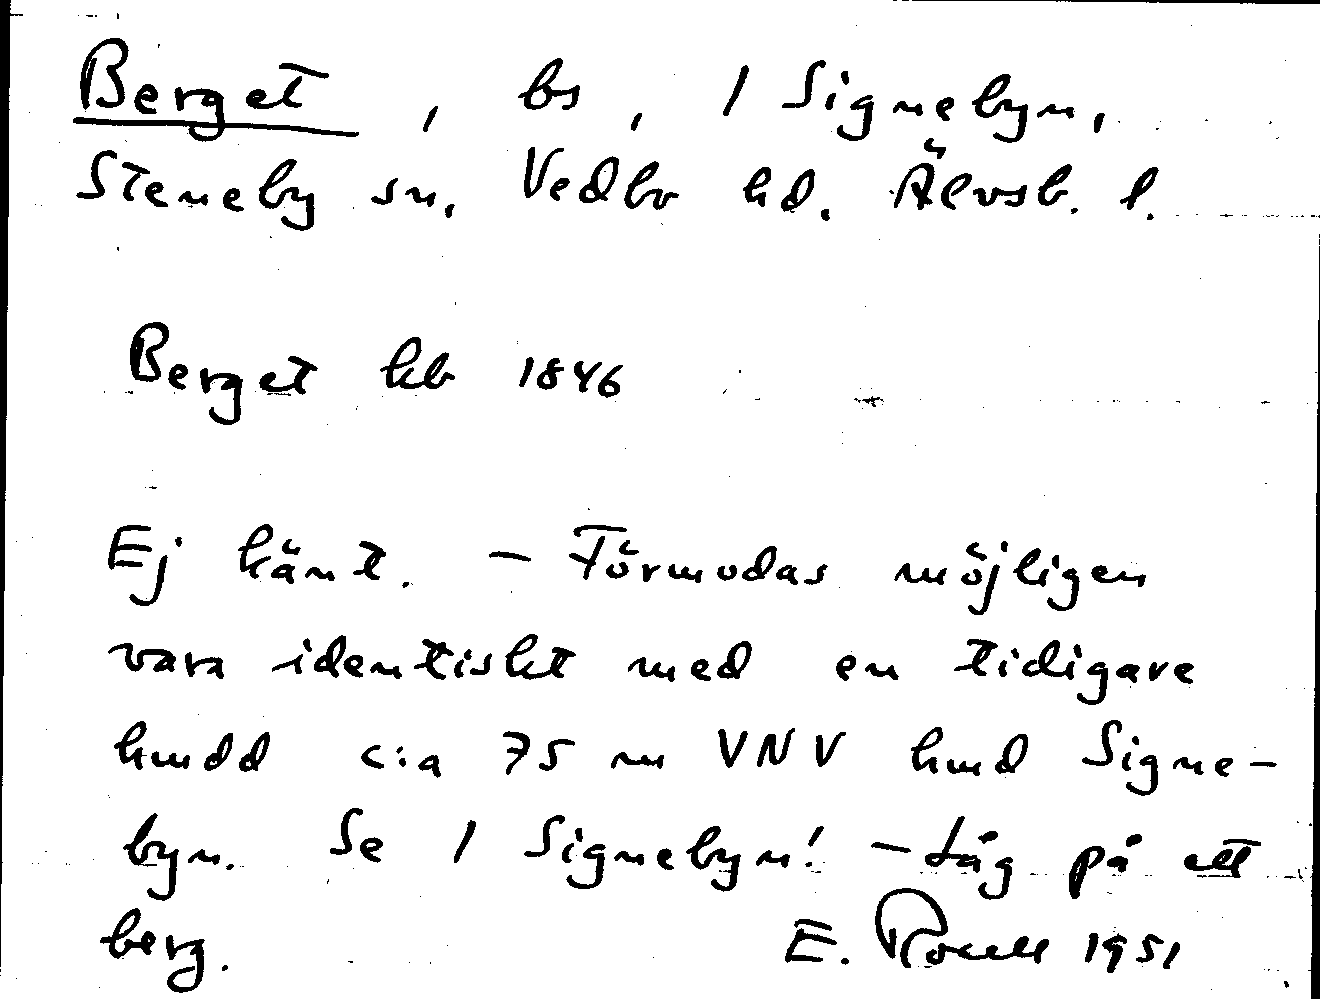 Berget, bs, 1 Signebyn,
Steneby sn, Vedbo hd. Älvsb. l.
Berget kb 1846
Ej känt. - Förmodas möjligen
vara identiskt med en tidigare
hmdd c:a 75 m VNV hmd Signe-
byn. Se 1 Signebyn! - Låg på ett
berg.
E. 1951